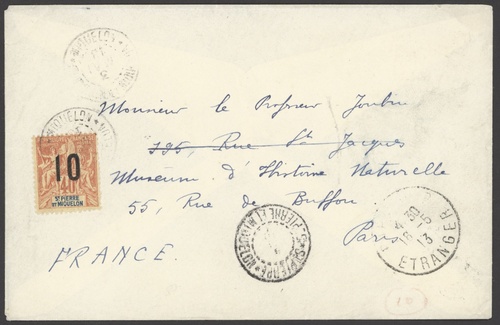 Monsieur le Professeur Joubin
195, Rue St Jacques
Museum d'Histoire Naturelle
55, Rue de Buffon
Paris
FRANCE.
10
40
ST PIERRE
ET MIQUELON
ST PIERRE
4 30
16 -5
13
ETRANGER